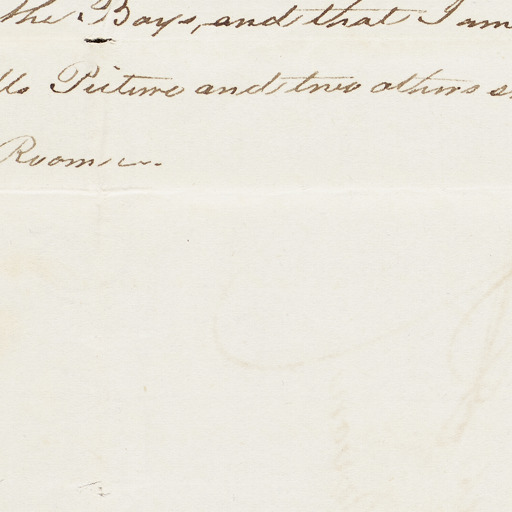 the Boys, and that I am
lls Picture and two others
Room